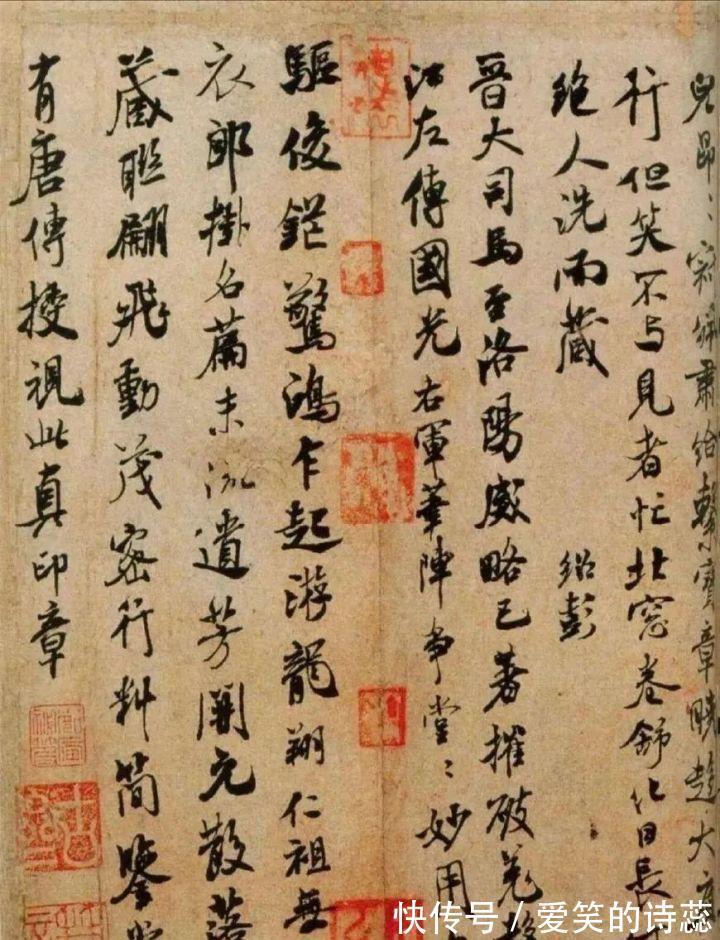 兒昂〻寶章大
行但笑不与見者忙北窓卷舒化日長
絶人洗而藏 紹彭
晉大司馬至洛陽威略已著摧破羌
江左傳國光右軍筆陣爭堂〻妙用
驅俊鋩驚鴻乍起游龍翔仁祖無
衣郎掛名篇末流遺芳開元散落
藏聯翩飛動茂密行料簡鑒
有唐傳授視此真印章
快传号 / 爱笑的诗蕊